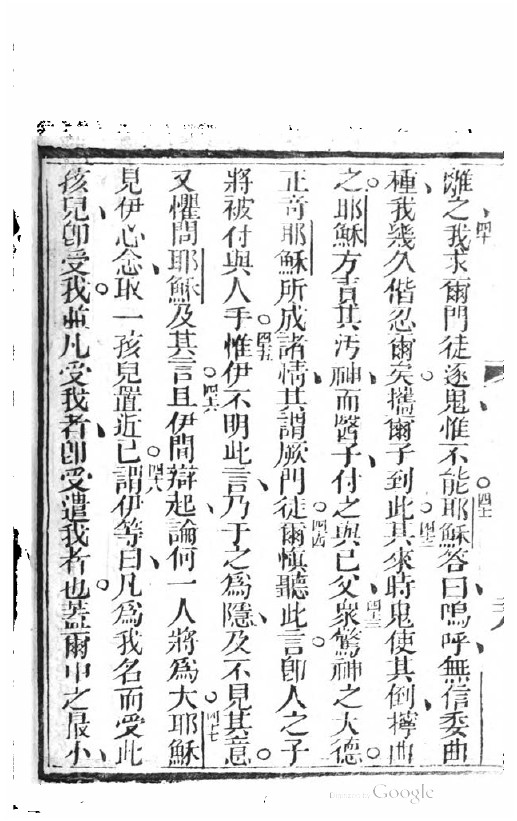 離之四十我求爾門徒逐鬼惟不能○四一耶穌答曰嗚呼無信委曲
種我幾久偕忍爾矣○攜爾子到此○四二其來時鬼使其倒擰曲
之○耶穌方責其汚神而醫子付之與己父四三衆驚神之大德○
正奇耶穌所成諸情其謂厥門徒○四四爾慎聽此言○卽人之子
將被付與人手○四五惟伊不明此言乃于之為隱及不見其意○
又懼問耶穌及其言○四六且伊間辯起論何一人將為大○四七耶穌
見伊心念取一孩兒置近己○四八謂伊等曰凡為我名而受此
孩兒卽受我○並凡受我者卽受遣我者也○蓋爾中之最小
Digitized by Google